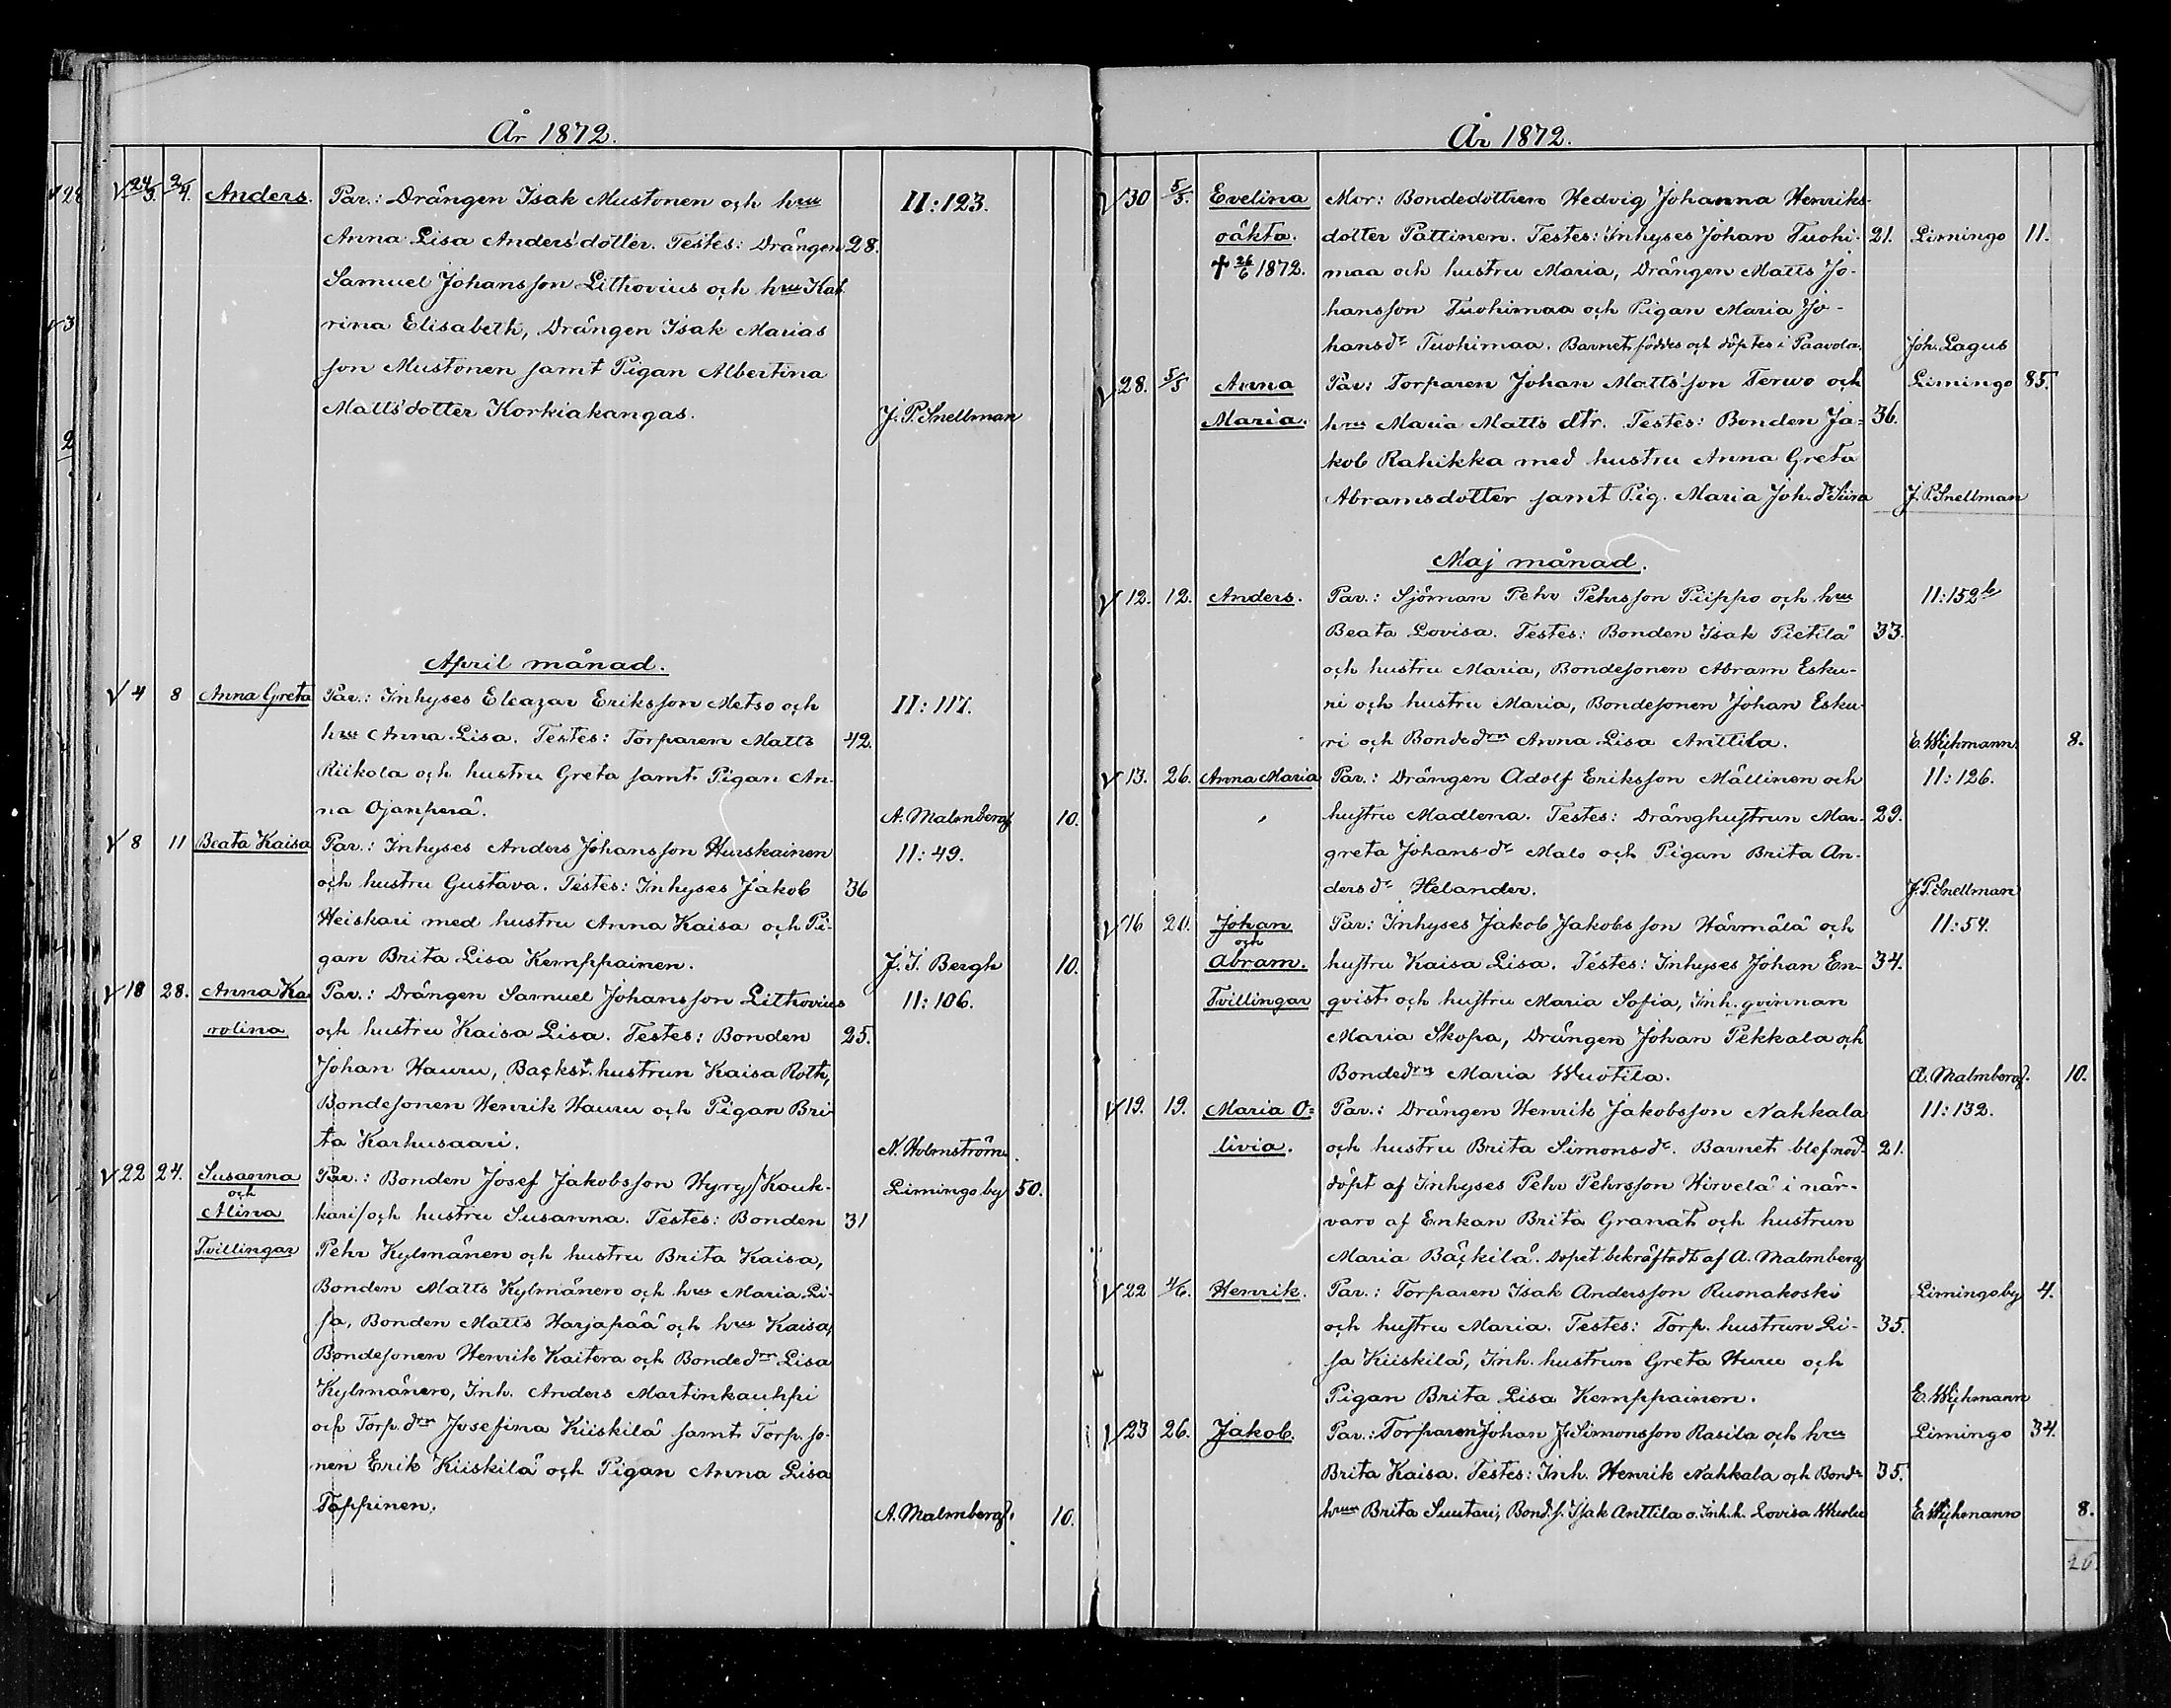 År 1872.
√ 24/3. 2/4. Anders. Par.: Drängen Isak Mustonen och hru II:123.
Anna Lisa Anders'dotter. Testes: Drängen 28.
Samuel Johansson Lithovius och hru Kat
rina Elisabeth, Drängen Isak Marias
son Mustonen samt Pigan Albertina
Matts'dotter Korkiakangas. J. P. Snellman
April månad.
√ 4 8 Anna Greta Par.: Inhyses Eleazar Eriksson Metso och II:117.
hru Anna Lisa. Testes: Torparen Matts 42.
Riikola och hustru Greta samt Pigan An-
na Ojanperä. A. Malmberg 10.
√ 8 11 Beata Kaisa Par.: Inhyses Anders Johansson Hurskainen 11:49.
och hustru Gustava. Testes: Inhyses Jakob 36
Heiskari med hustru Anna Kaisa och Pi-
gan Brita Lisa Kemppainen. J. I. Bergh 10.
√ 18 28. Anna Ka Par.: Drängen Samuel Johansson Lithovius 11:106.
rolina och hustru Kaisa Lisa. Testes: Bonden 25.
Johan Hauru, Backst. hustrun Kaisa Roth,
Bondesonen Henrik Hauru och Pigan Bri-
ta Karhusaari. N. Holmström.
√ 22 24. Susanna Par.: Bonden Josef Jakobsson Hyry/Kauk- Limingo by 50.
och
Alina kari/och hustru Susanna. Testes: Bonden 31
Tvillingar Pehr Kylmänen och hustru Brita Kaisa,
Bonden Matts Kylmänen och hru Maria Li-
sa, Bonden Matts Harjapää och hru Kaisa,
Bondesonen Henrik Kaitera och Bondedrn Lisa
Kylmänen, Inh. Anders Martinkauppi
och Torp. drn Josefina Kiiskilä samt Torp. so-
nen Erik Kiiskilä och Pigan Anna Lisa
Toppinen. A. Malmberg. 10.
År 1872.
√ 30 5/5. Evelina Mor: Bondedottren Hedvig Johanna Henriks-
oäkta. dotter Pattinen. Testes: Inhyses Johan Tuohi- 21. Limingo 11.
✝ 26/6 1872. maa och hustru Maria, Drängen Matts Jo-
hansson Tuohimaa och Pigan Maria Jo-
hansdr Tuohimaa. Barnet föddes och döptes i Paavola. Joh. Lagus
√ 28. 5/5 Anna Par: Torparen Johan Matts'son Terwo och Limingo 85.
Maria. hru Maria Matts dtr. Testes: Bonden Ja= 36.
kob Rahikka med hustru Anna Greta
Abramsdotter samt Pig. Maria Joh. dr Siira J. P. Snellman
Maj månad.
√ 12. 12. Anders. Par.: Sjöman Pehr Pehrsson Piippo och hru 11:152 b
Beata Lovisa. Testes: Bonden Isak Pietilä 33.
och hustru Maria, Bondesonen Abram Esku-
ri och hustru Maria, Bondesonen Johan Esku-
ri och Bondedrn Anna Lisa Anttila. E. Wichmann 8.
√ 13. 26. Anna Maria Par.: Drängen Adolf Eriksson Mällinen och 11:126.
hustru Madlena. Testes: Dränghustrun Mar- 29.
greta Johans dr Malo och Pigan Brita An-
ders dr Helander. J. P. Snellman
√ 16 20. Johan Par: Inhyses Jakob Jakobsson Härmälä och 11:54.
och
Abram. hustru Kaisa Lisa. Testes: Inhyses Johan En- 34.
Tvillingar qvist och hustru Maria Sofia, Inh. qvinnan
Maria Skopa, Drängen Johan Pekkala och
Bondedrn Maria Wuotila. A. Malmberg. 10.
√ 19. 19. Maria O= Par.: Drängen Henrik Jakobsson Nahkala 11:132.
livia. och hustru Brita Simonsdr. Barnet blef nöd- 21.
döpt af Inhyses Pehr Pehrsson Hirvelä i när-
varo af Enkan Brita Granat och hustrun
Maria Bäckilä. Dopet bekräftadt af A. Malmberg
√ 22 4/6. Henrik. Par.: Torparen Isak Andersson Ruonakoski Limingoby 4.
och hustru Maria. Testes: Torp. hustrun Li- 35.
sa Kiiskilä, Inh. hustrun Greta Huru och
Pigan Brita Lisa Kemppainen. E. Wichmann
√ 23 26. Jakob. Par.: Torparen Johan Simonsson Rasila och hru Limingo 34.
Brita Kaisa. Testes: Inh. Henrik Nahkala och Bond- 35.
hrun Brita Suutari, Bond. s. Isak Anttila o. Inh. h. Lovisa E. Wichmann 8.
26.